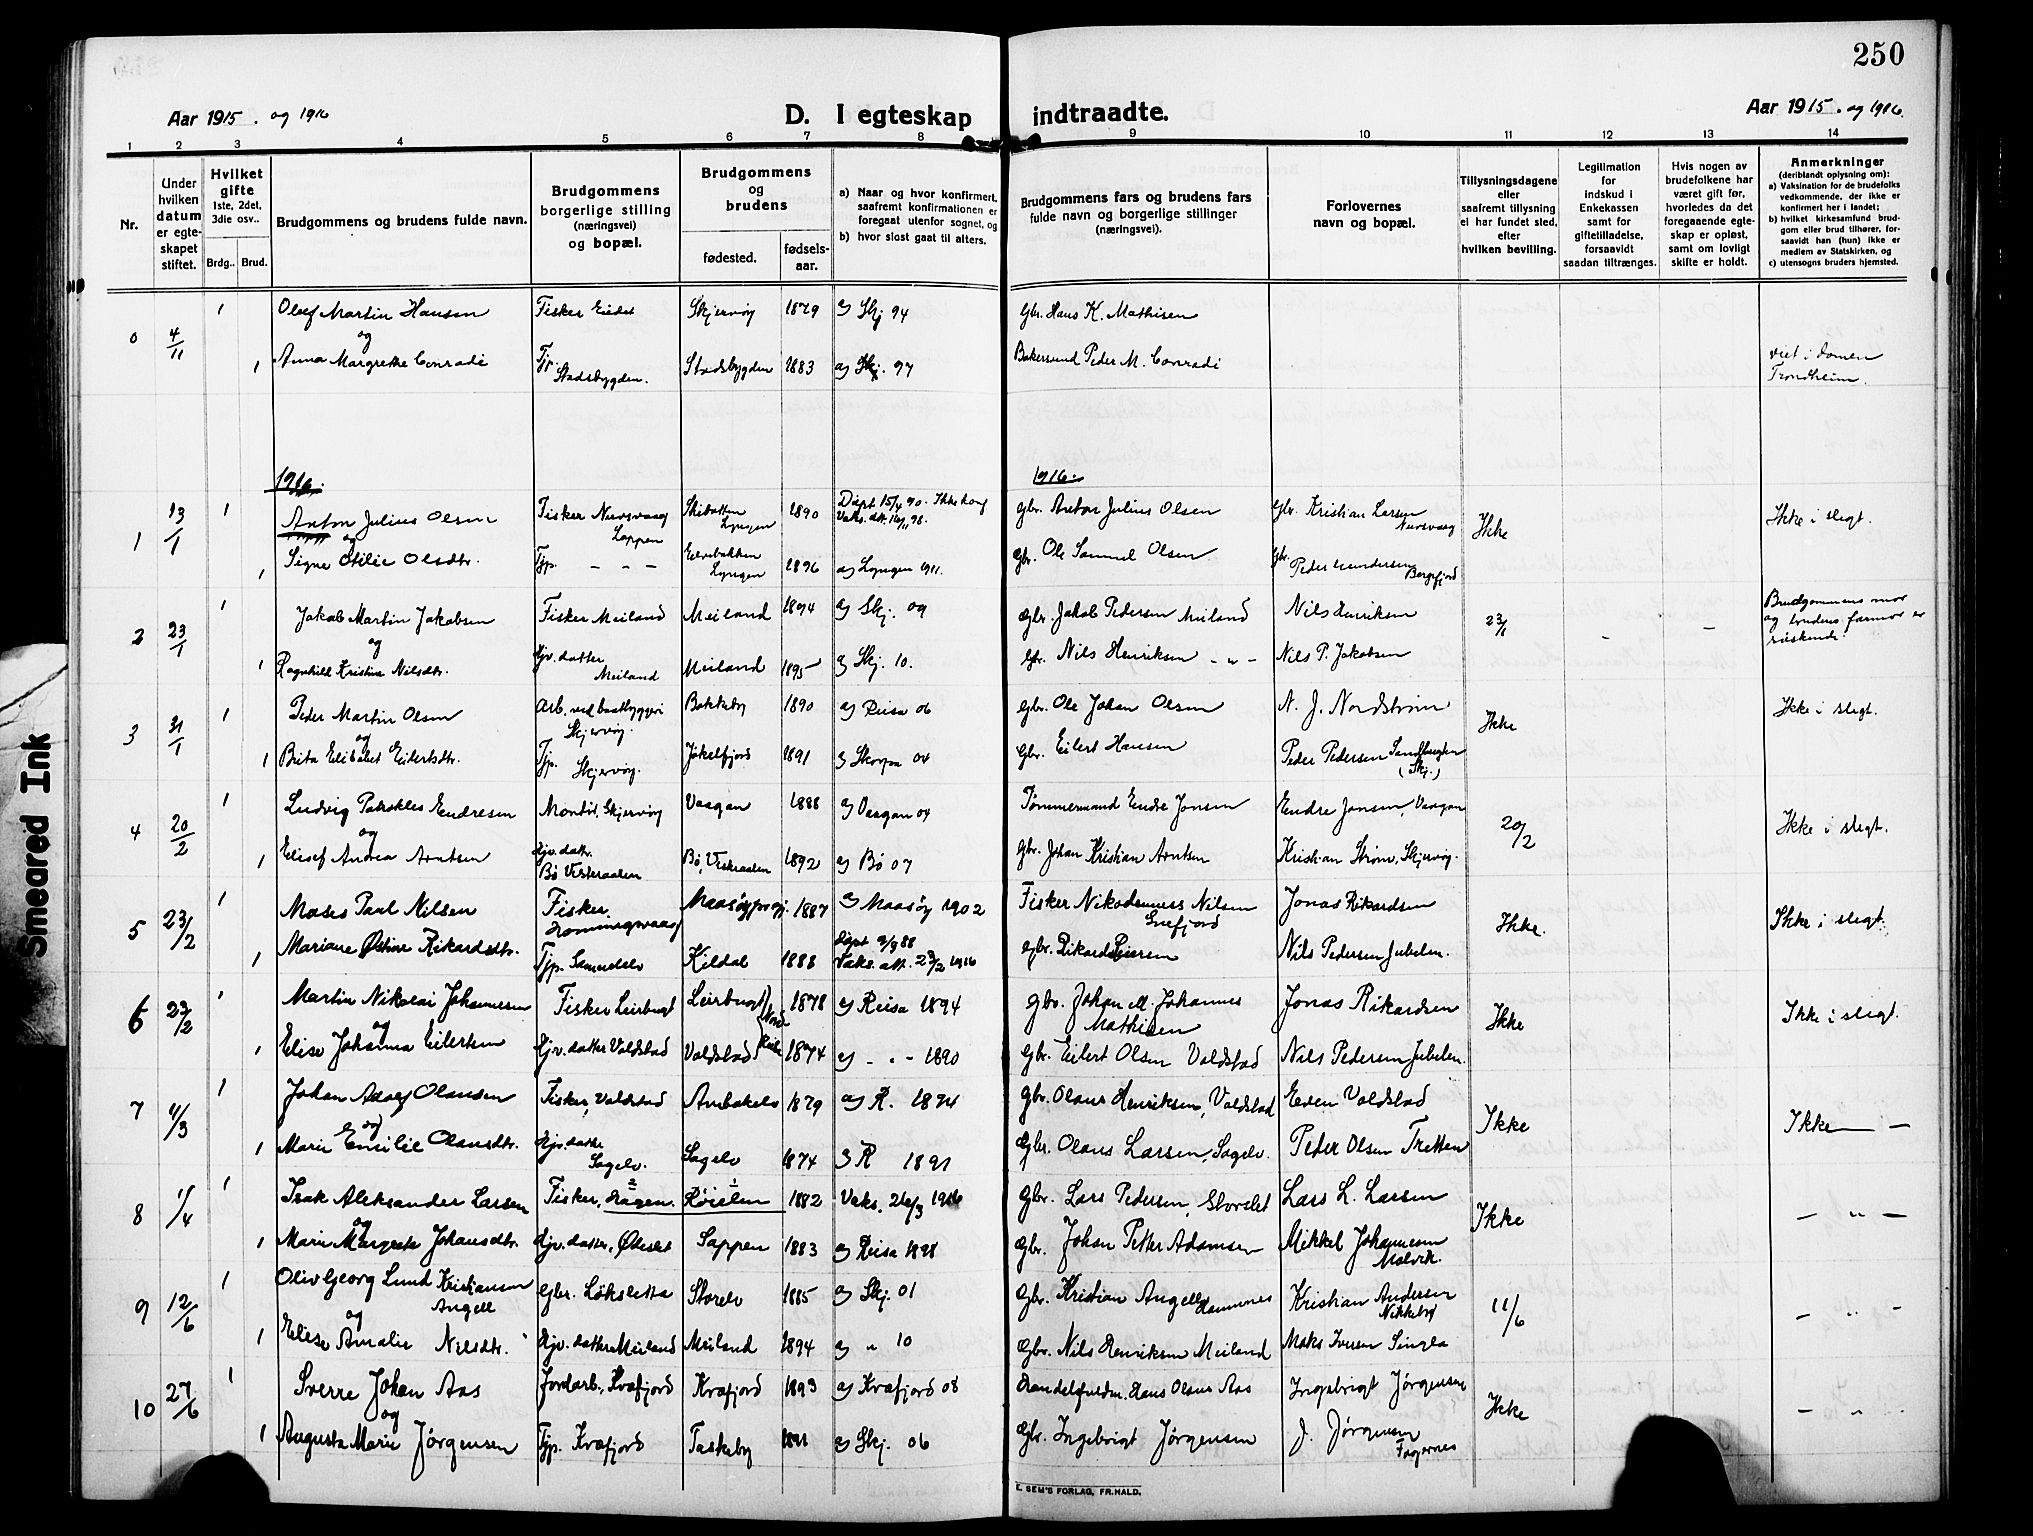 250
Aar 1915. og 1916
D. I egteskap indtraadte.
Aar 1915. og 1916.
1 2 3 4 5 6 7 8 9 10 11 12 13 14
Nr.
Under hvilken datum er egteskapet stiftet.
Hvilket gifte 1ste, 2det, 3die osv..
Brdg.. Brud.
Brudgommens og brudens fulde navn.
Brudgommens borgerlige stilling (næringsvei) og bopæl.
Brudgommens og brudens
fødested. fødselsaar.
a) Naar og hvor konfirmert, saafremt konfirmationen er foregaat utenfor sognet, og
b) hvor sidst gaat til alters.
Brudgommens fars og brudens fars fulde navn og borgerlige stillinger (næringsvei).
Forlovernes navn og bopæl.
Tillysningsdagene eller saafremt tillysning ei har fundet sted, efter hvilken bevilling.
Legitimation for indskud i Enkekassen samt for giftetilladelse, forsaavidt saadan tiltrænges.
Hvis nogen av brudefolkene har været gift før, hvorledes da det foregaaende egteskap er opløst, samt om lovligt skifte er holdt.
Anmerkninger (deriblandt oplysning om:
a) Vaksination for de brudefolks vedkommende, der ikke er konfirmert her i landet;
b) hvilket kirkesamfund brudgom eller brud tilhører, forsaavidt han (hun) ikke er medlem av Statskirken, og
c) utensogns bruders hjemsted.
0 4/11 1 Olaf Martin Hansen Fisker Eidet Skjervøy 1879 a) Skj 94 Gbr. Hans K. Mathisen
og
1 Anna Margrethe Conradi Tjp. Stadsbygden. Stadsbygden 1883 a) Skj. 97 Peder M. Conradi viet i domen Trondheim.
1916. 1916.
1 13/1 1 Anton Julius Olsen Fisker Nuvsvaag Loppen Skibotten Lyngen 1890 Døpt 15/4 90. Ikke konf Vaks. att. 16/11 98. gbr. Anton Julius Olsen Gbr. Kristian Larsen Nuvsvaag Ikke Ikke i slegt.
og
1 Signe Otilie Olsdtr. Tjp. — — — Lyngen 1896 a) Lyngen 1911. Gbr. Ole Samuel Olsen Gbr. Peder Bergsfjord
2 23/1 1 Jakob Martin Jakobsen Fisker Meiland Meiland 1894 a) Skj. 09 Gbr. Jakob Pedersen Meiland Nils Henriksen 23/1 - - Brudgommens mor og brudens farmor er søskende.
og
1 Ragnhild Kristine Nilsdtr. Hjv. datter Meiland Meiland 1895 a) Skj. 10. Gbr. Nils Henriksen - " - Nils P. Jakobsen
3 31/1 1 Peder Martin Olsen Arb. ved baatbyggeri Skjervøy. Bakkeby 1890 a) Reisa 06 Gbr. Ole Johan Olsen N. J. Nordstrøm Ikke Ikke i slegt.
og
1 Brita Elisabet Eilertsdtr. Tjp. Skjervøy. Jøkelfjord 1891 a) Skorpa 04 Gbr. Eilert Hansen Peder Pedersen (Skj.)
4 20/2 1 Ludvig Patrokles Endresen Montør, Skjervøy Vaagan 1888 a) Vaagan 04 Tømmermand Endre Jonsen Endre Jonsen, Vaagan 20/2 Ikke i slegt.
og
1 Elisef Andrea Arntsen Hjv. dattr. Bø Vesteraalen Bø, Vesteraalen 1892 a) Bø 07 Gbr. Johan Kristian Arntsen Kristian Strøm, Skjervøy.
5 23/2 1 Moses Paul Nilsen Fisker. 1887 a) Maasøy 1902 Fisker Nikodemus Nilsen Snefjord Jonas Rikardsen Ikke. Ikke i slegt.
1 Mariane Østine Rikardsdtr. Tjp. Samuelelv Kildal 1888 Døpt 2/9 88 Vaks. att. 23/2 1916 Gbr. Rikard Nils Pedersen Jubelen.
6 23/2 1 Martin Nikolai Johannesen Fisker Leirbugt Leirbugt 1878 a) Reisa 1894 Gbr. Johan ell. Johannes Mathisen Jonas Rikardsen Ikke Ikke i slegt.
og Nord Reisa
1 Elise Johanna Eilertsen Hjv. datter Voldstad Voldstad 1874 a) - " - 1890 Gbr. Eilert Olsen Voldstad Nils Pedersen Jubelen.
7 4/3 1 Johan Adolf Olausen Fisker, Voldstad 1879 a) R. 1894 Gbr. Olaus Henriksen, Voldstad Even Voldstad Ikke Ikke — —
og
1 Marie Emilie Olausdtr. Hjv. datter Sagelv. Sagelv 1874 a) R 1891 Gbr. Olaus Larsen, Sagelv. Peder Olsen Tretten
8 1/4 1 Isak Aleksander Larsen Fisker, Hagen. Røielen 1882 Vaks. 26/3 1916 Gbr. Lars Pedersen, Storslet Lars L. Larsen Ikke — " —
og
1 Marie Margrete Johansdtr. Hjv. datter, Ødeslet Sappen 1883 a) Reisa 1898 Gbr. Johan Petter Adamsen Mikkel Johannesen
9 12/6 1 Oliv Georg Lund Kristiansen Angell Gbr. Løksletta Storelv 1885 a) Skj. 01 Gbr. Kristian Angell Hamnnes Kristian Andersen Nikkeby 11/6 — " —
og
1 Elise Amalie Nilsdtr. Hjv. datter Meiland Meiland 1894 a) " 10 Gbr. Nils Henriksen Meiland Maks Iversen Singla
10 27/6 1 Sverre Johan Aas Jordarb., Kvæfjord Kvæfjord 1893 a) Kvæfjord 08 Hans Olaus Aas Ingebrigt Jørgensen Ikke — " -
og
1 Augusta Marie Jørgensen Tjp. Kvæfjord Taskeby a) Skj. 06 Gbr. Ingebrigt Jørgensen J. Jørgensen Fagernes
E. SEM'S FORLAG, FR.HALD.
Smeared Ink